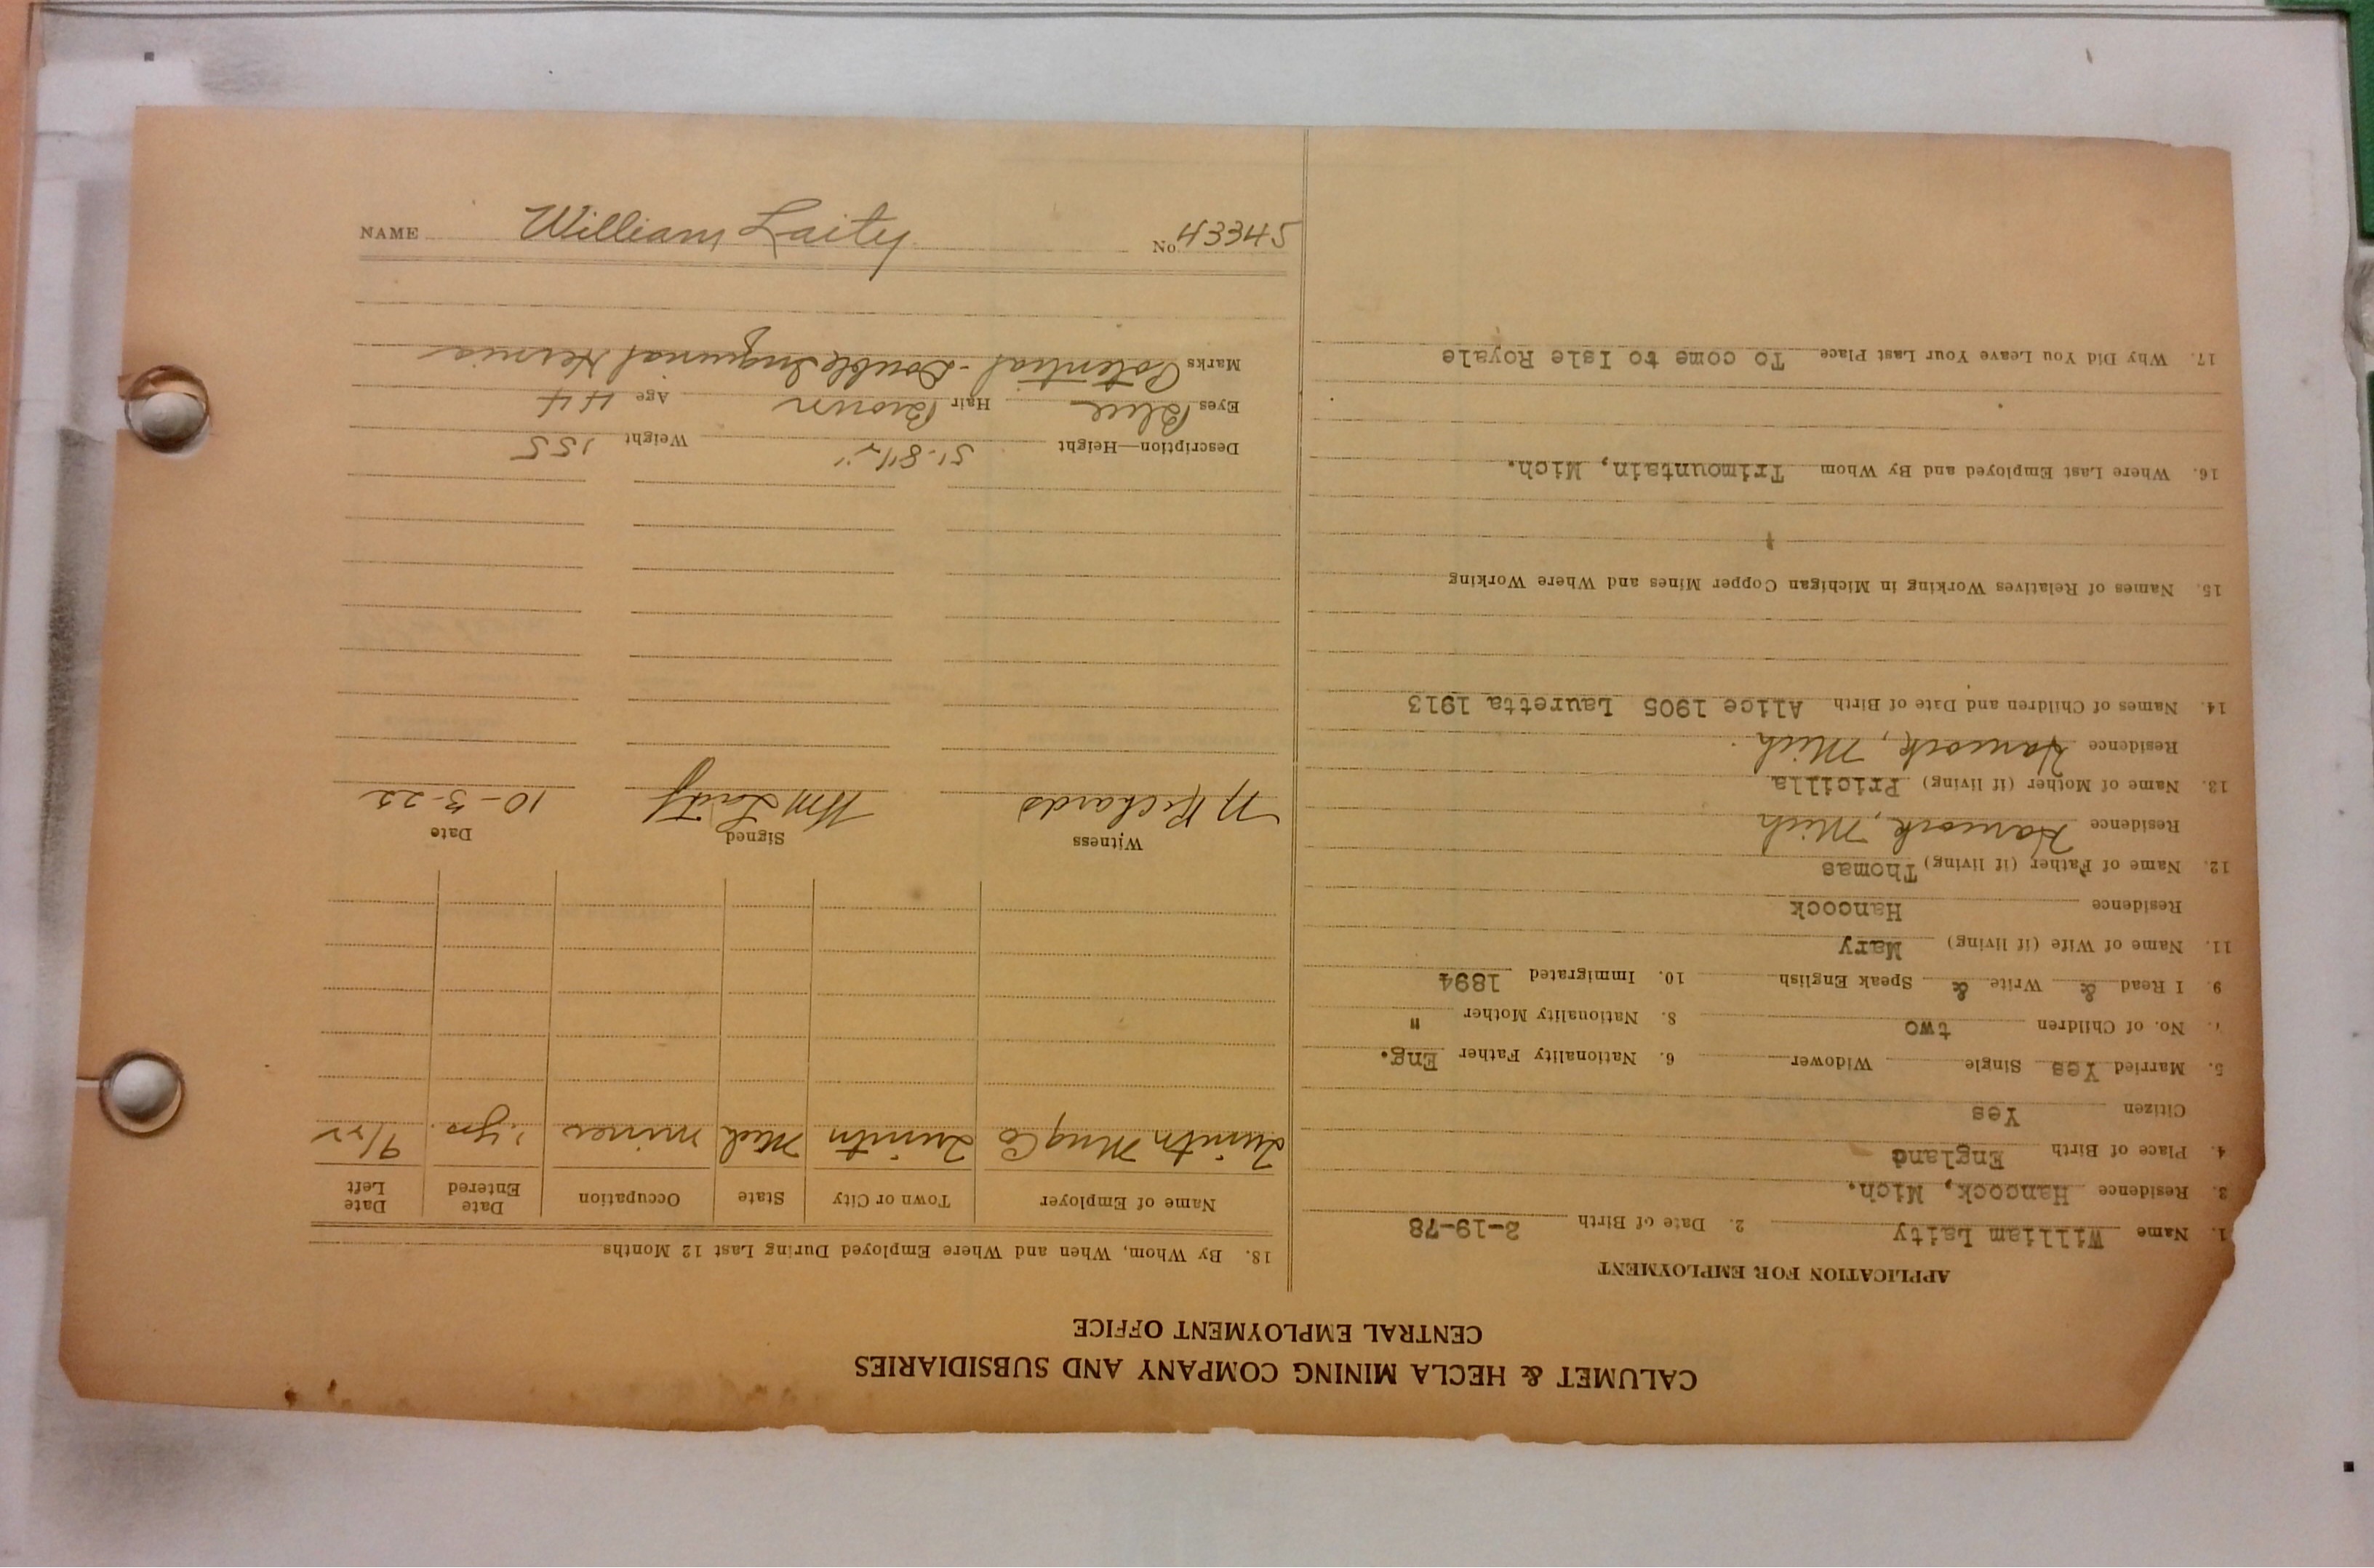 CALUMET & HECLA MINING COMPANY AND SUBSIDIARIES
CENTRAL EMPLOYMENT OFFICE
APPLICATION FOR EMPLOYMENT
1. Name William Laity 2. Date of Birth 2-19-78
3. Residence Hancock, Mich.
4. Place of Birth England
Citizen Yes
5. Married Yes Single Widower 6. Nationality Father Eng.
7. No. of Children two 8. Nationality Mother "
9. I Read & Write & Speak English 10. Immigrated 1894
11. Name of Wife (if living) Mary
Residence Hancock
12. Name of Father (if living) Thomas
Residence Hancock, Mich
13. Name of Mother (if living) Pricilla
Residence Hancock, Mich.
14. Names of Children and Date of Birth Alice 1905 Lauretta 1913
15. Names of Relatives Working in Michigan Copper Mines and Where Working
16. Where Last Employed and By Whom Trimountain, Mich.
17. Why Did You Leave Your Last Place To come to Isle Royale
18. By Whom, When and Where Employed During Last 12 Months
Name of Employer Town or City State Occupation Date Entered Date Left
Mng Co Mich miner yrs. 9/22
Witness Signed Date
Richards Wm Laity 10-3-22
Description—Height 5'-8½" Weight 155
Eyes Blue Hair Brown Age 44
Marks Potential - Double Inguinal Hernia
NAME William Laity No. 43345